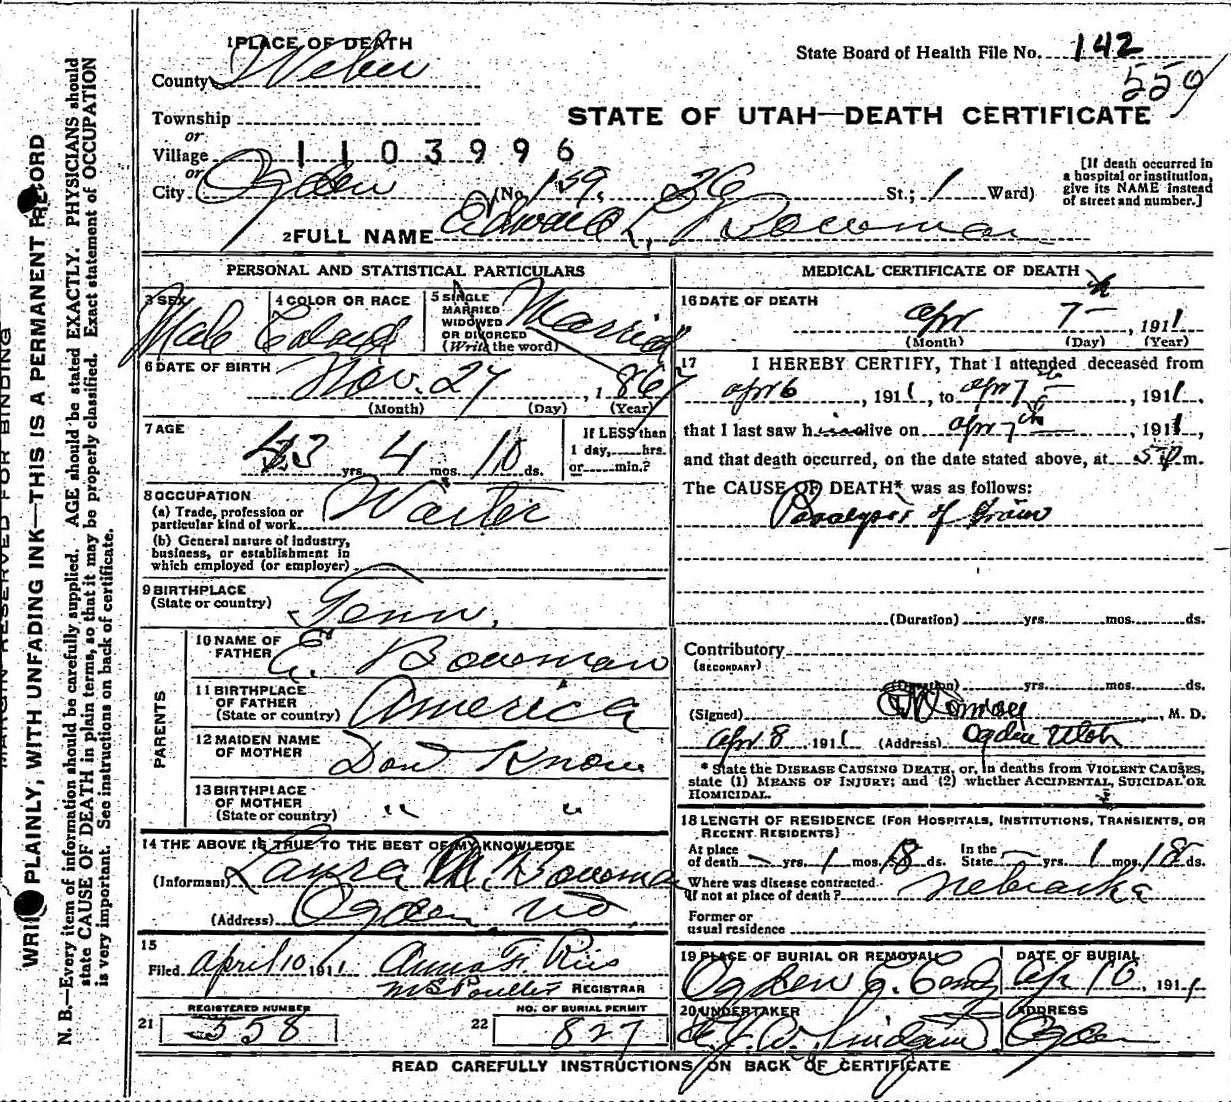 1 PLACE OF DEATH
County Weber
State Board of Health File No. 142
559
STATE OF UTAH—DEATH CERTIFICATE
Township
or
Village 1103996
or
City Ogden (No. 159. 26 St.; 1 Ward)
[If death occurred in
a hospital or institution,
give its NAME instead
of street and number.]
2 FULL NAME Edward L. Bowman
PERSONAL AND STATISTICAL PARTICULARS
3 SEX Male
4 COLOR OR RACE Colored
5 SINGLE
MARRIED
WIDOWED
OR DIVORCED
(Write the word) Married
6 DATE OF BIRTH Nov. 27, 1867
(Month) (Day) (Year)
7 AGE 43 yrs. 4 mos. 10 ds.
If LESS than
1 day, hrs.
or min.?
8 OCCUPATION
(a) Trade, profession or
particular kind of work Waiter
(b) General nature of industry,
business, or establishment in
which employed (or employer)
9 BIRTHPLACE
(State or country) Tenn.
PARENTS
10 NAME OF
FATHER E. Bowman
11 BIRTHPLACE
OF FATHER
(State or country) America
12 MAIDEN NAME
OF MOTHER Dont Know
13 BIRTHPLACE
OF MOTHER
(State or country) " "
14 THE ABOVE IS TRUE TO THE BEST OF MY KNOWLEDGE
(Informant) Laura M. Bowman
(Address) Ogden
15
Filed April 10 1911 Anna F. Ries
REGISTRAR
REGISTERED NUMBER
21 558
NO. OF BURIAL PERMIT
22 827
MEDICAL CERTIFICATE OF DEATH
16 DATE OF DEATH
Apr 7th, 1911
(Month) (Day) (Year)
17 I HEREBY CERTIFY, That I attended deceased from
Apr 6, 1911, to Apr 7th, 1911,
that I last saw him alive on Apr 7th, 1911,
and that death occurred, on the date stated above, at m.
The CAUSE OF DEATH* was as follows:
Paralysis of Brain
(Duration) yrs. mos. ds.
Contributory
(SECONDARY)
(Duration) yrs. mos. ds.
(Signed) Conroy, M. D.
Apr 8 1911 (Address) Ogden Utah
* State the DISEASE CAUSING DEATH, or, in deaths from VIOLENT CAUSES,
state (1) MEANS OF INJURY; and (2) whether ACCIDENTAL, SUICIDAL OR
HOMICIDAL.
18 LENGTH OF RESIDENCE (FOR HOSPITALS, INSTITUTIONS, TRANSIENTS, OR
RECENT RESIDENTS)
At place
of death — yrs. 1 mos. 18 ds.
In the
State — yrs. 1 mos. 18 ds.
Where was disease contracted
If not at place of death? Nebraska
Former or
usual residence
19 PLACE OF BURIAL OR REMOVAL
Ogden C. Cemty
DATE OF BURIAL
Ap 10, 1911
20 UNDERTAKER
ADDRESS
Ogden
READ CAREFULLY INSTRUCTIONS ON BACK OF CERTIFICATE
MARGIN RESERVED FOR BINDING
WRITE PLAINLY, WITH UNFADING INK—THIS IS A PERMANENT RECORD
N. B.—Every item of information should be carefully supplied. AGE should be stated EXACTLY. PHYSICIANS should
state CAUSE OF DEATH in plain terms, so that it may be properly classified. Exact statement of OCCUPATION
is very important. See instructions on back of certificate.